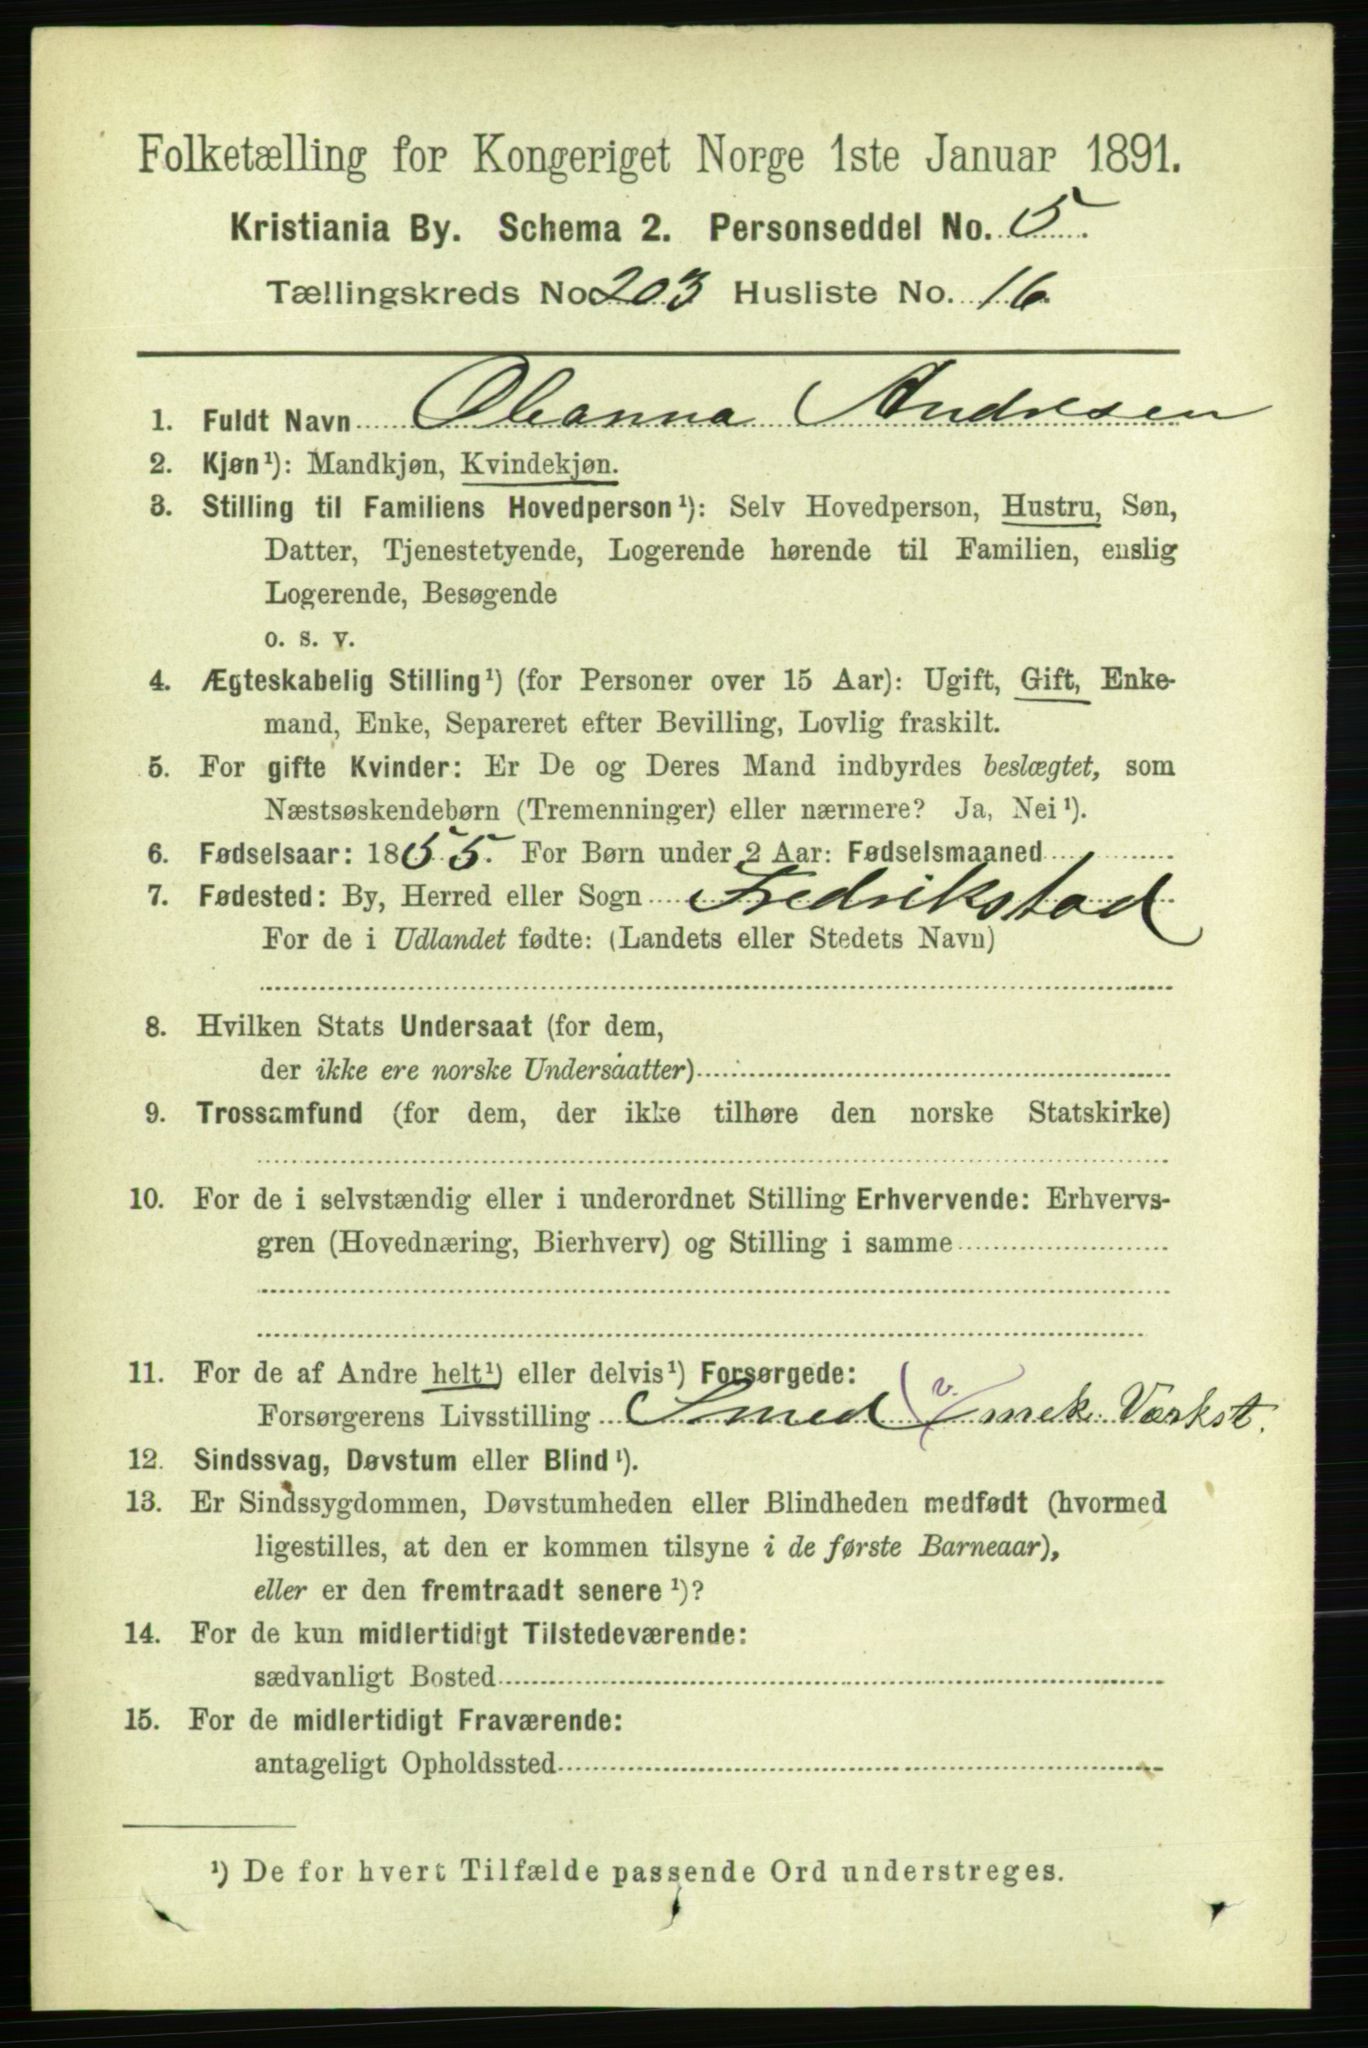 Folketælling for Kongeriget Norge 1ste Januar 1891.
Kristiania By. Schema 2. Personseddel No. 5.
Tællingskreds No 203 Husliste No. 16.
1. Fuldt Navn Oleanna Andresen
2. Kjøn¹): Mandkjøn, Kvindekjøn.
3. Stilling til Familiens Hovedperson¹): Selv Hovedperson, Hustru, Søn,
Datter, Tjenestetyende, Logerende hørende til Familien, enslig
Logerende, Besøgende
o. s. v.
4. Ægteskabelig Stilling¹) (for Personer over 15 Aar): Ugift, Gift, Enke-
mand, Enke, Separeret efter Bevilling, Lovlig fraskilt.
5. For gifte Kvinder: Er De og Deres Mand indbyrdes beslægtet, som
Næstsøskendebørn (Tremenninger) eller nærmere? Ja, Nei¹).
6. Fødselsaar: 1855. For Børn under 2 Aar: Fødselsmaaned
7. Fødested: By, Herred eller Sogn Fredrikstad
For de i Udlandet fødte: (Landets eller Stedets Navn)
8. Hvilken Stats Undersaat (for dem,
der ikke ere norske Undersaatter)
9. Trossamfund (for dem, der ikke tilhøre den norske Statskirke)
10. For de i selvstændig eller i underordnet Stilling Erhvervende: Erhvervs-
gren (Hovednæring, Bierhverv) og Stilling i samme
11. For de af Andre helt¹) eller delvis¹) Forsørgede:
Forsørgerens Livsstilling Smed v. mek. Værkst.
12. Sindssvag, Døvstum eller Blind¹).
13. Er Sindssygdommen, Døvstumheden eller Blindheden medfødt (hvormed
ligestilles, at den er kommen tilsyne i de første Barneaar),
eller er den fremtraadt senere¹)?
14. For de kun midlertidigt Tilstedeværende:
sædvanligt Bosted
15. For de midlertidigt Fraværende:
antageligt Opholdssted
¹) De for hvert Tilfælde passende Ord understreges.